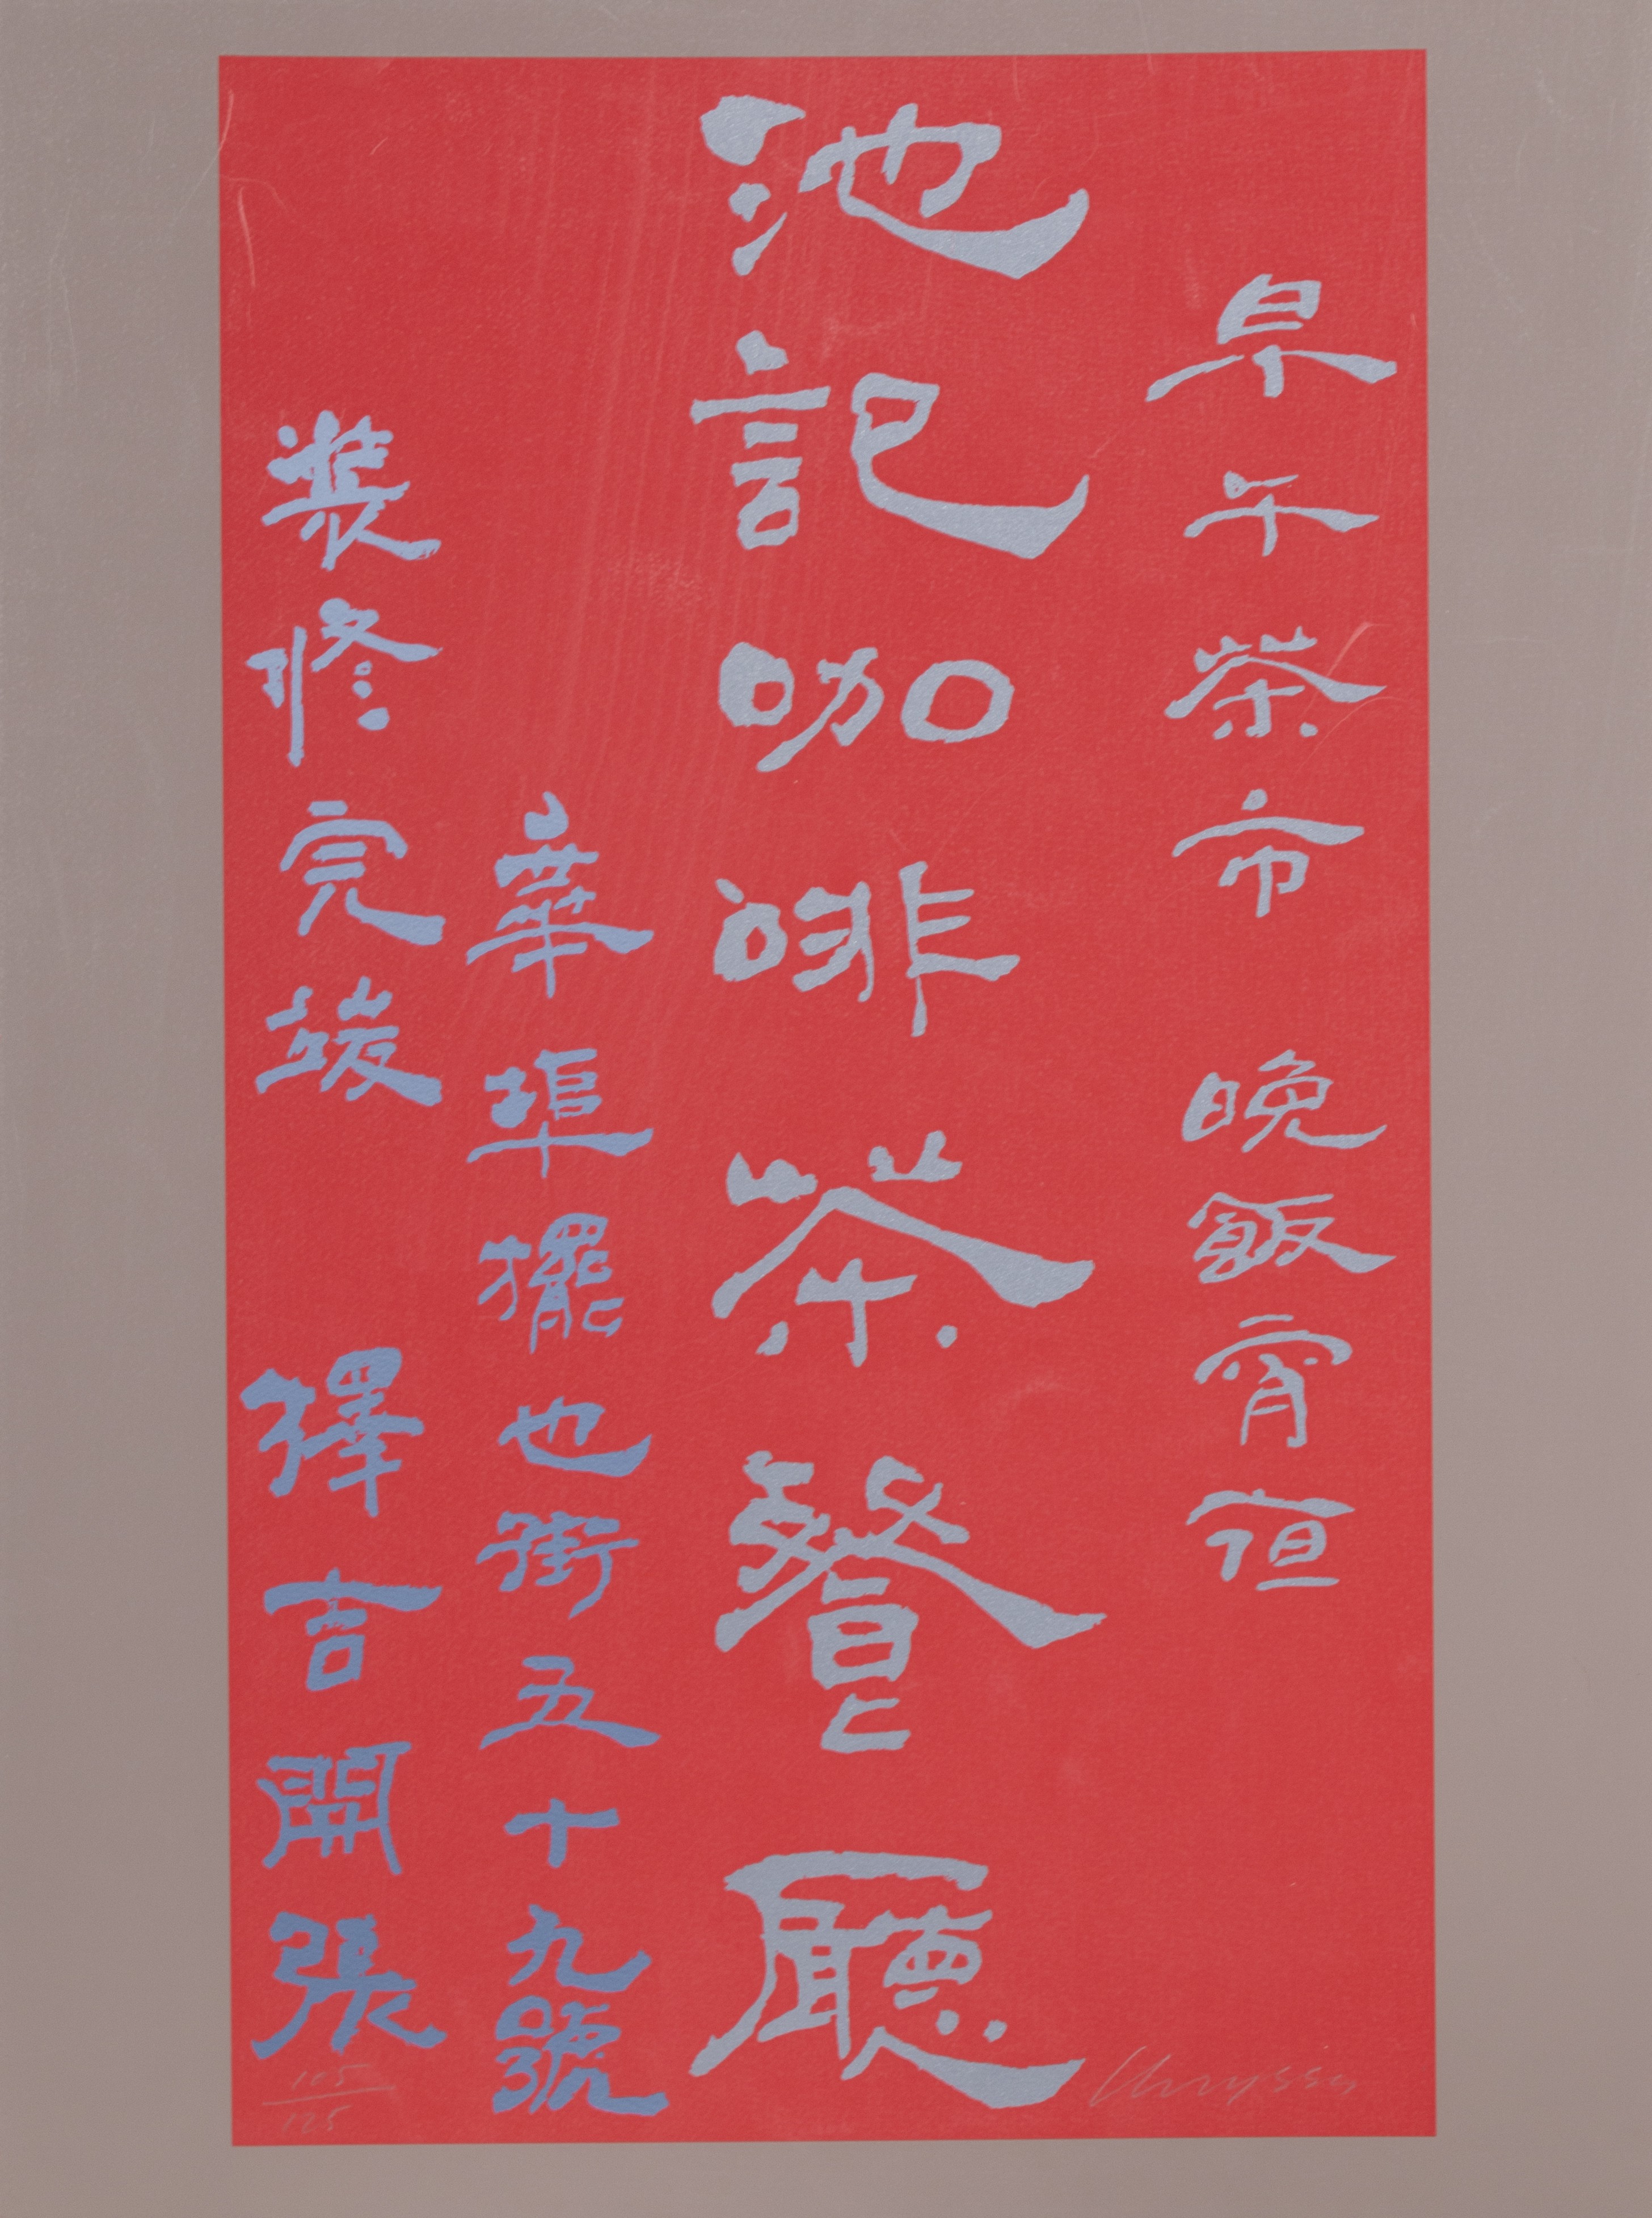 早午茶市 晚飯宵夜
池記咖啡茶餐廳
華埠擺也街五十九號
裝修完竣 擇吉開張
105/125
Chryssa